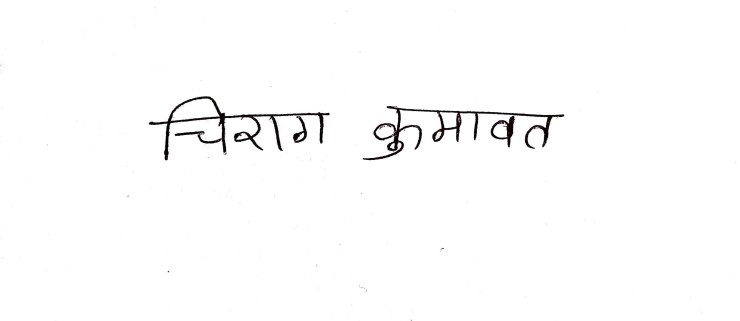 चिराग कुमावत